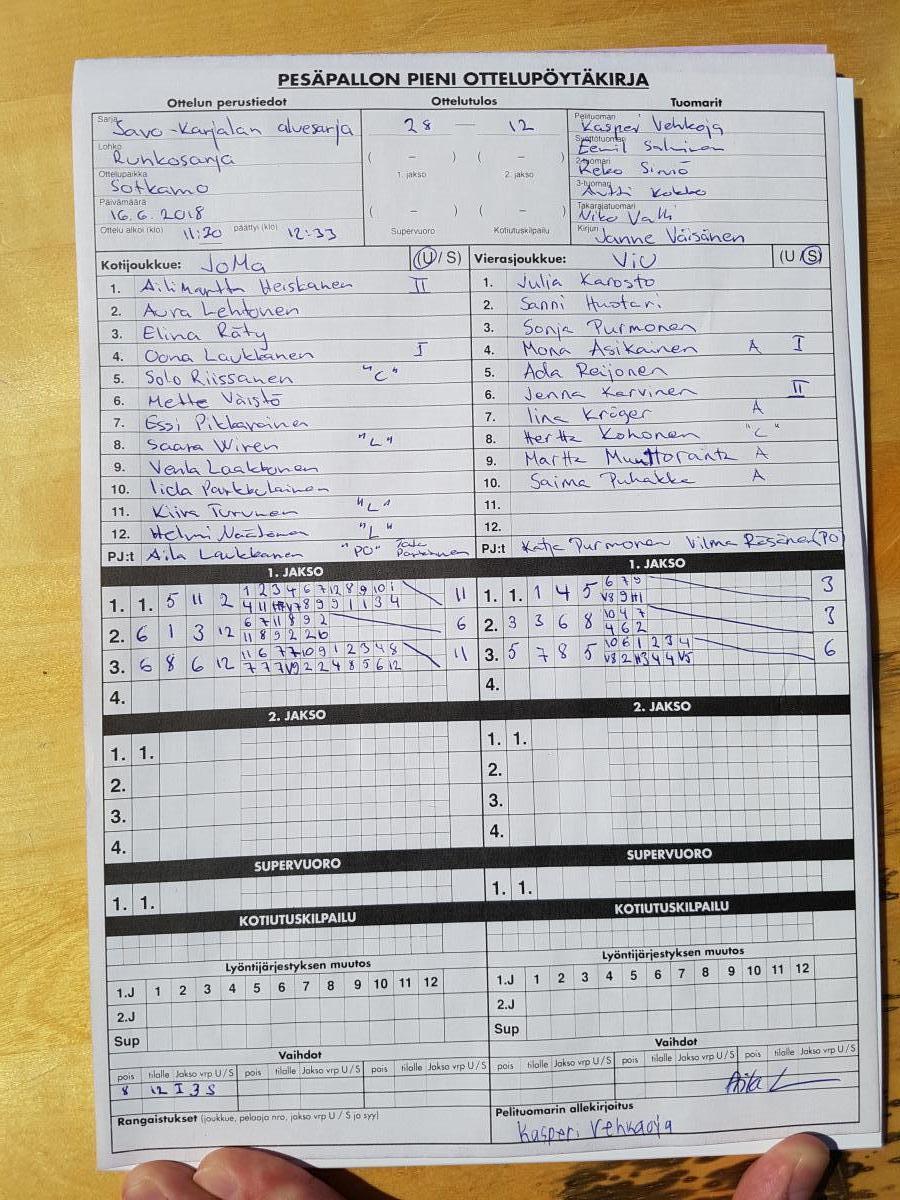 PESÄPALLON PIENI OTTELUPÖYTÄKIRJA
Ottelun perustiedot Ottelutulos Tuomarit
Sarja Savo-Karjalan aluesarja
Lohko Runkosarja
Ottelupaikka Sotkamo
Päivämäärä 16.6.2018
Ottelu alkoi (klo) 11:20 päättyi (klo) 12:33
28 — 12
( – ) ( – )
1. jakso 2. jakso
( – ) ( – )
Supervuoro Kotiutuskilpailu
Pelituomari Kasperi Vehkaoja
Syöttötuomari Eemil Salminen
2-tuomari Reko Simiö
3-tuomari Antti Kokko
Takarajatuomari Niko Valli
Kirjuri Janne Väisänen
Kotijoukkue: JoMa (U/S)
1. Ailimartta Heiskanen II
2. Aura Lehtonen
3. Elina Räty
4. Oona Laukkanen I
5. Solo Riissanen "C"
6. Mette Väistö
7. Essi Pikkarainen
8. Saara Wiren "L"
9. Venla Laakkonen
10. Iida Parkkulainen
11. Kiira Turunen "L"
12. Helmi Määttänen "L"
PJ:t Aila Laukkanen "PO"
Vierasjoukkue: ViU (U/S)
1. Julia Karosto
2. Sanni Huotari
3. Sonja Purmonen
4. Mona Asikainen A I
5. Ada Reijonen
6. Jenna Karvinen II
7. Iina Kröger A
8. Hertta Kohonen "C"
9. Martta Muuttoranta A
10. Saima Puhakka A
11.
12.
PJ:t Katja Purmonen Vilma Räsänen (PO)
1. JAKSO
1. 1. 5 11 2 1 2 3 4 6 7 12 8 9 10 1 11
2. 6 1 3 12 6 7 11 8 9 2 6
11 8 9 2 2
3. 6 8 6 12 11 6 7 7 10 9 1 2 3 4 8 11
4.
1. JAKSO
1. 1. 1 4 5 6 7 9 3
2. 3 3 6 8 10 4 7 3
4 6 2
3. 5 7 8 5 10 6 1 2 3 4 6
4.
2. JAKSO
1. 1.
2.
3.
4.
2. JAKSO
1. 1.
2.
3.
4.
SUPERVUORO
1. 1.
SUPERVUORO
1. 1.
KOTIUTUSKILPAILU
KOTIUTUSKILPAILU
Lyöntijärjestyksen muutos
1.J 1 2 3 4 5 6 7 8 9 10 11 12
2.J
Sup
Lyöntijärjestyksen muutos
1.J 1 2 3 4 5 6 7 8 9 10 11 12
2.J
Sup
Vaihdot
pois tilalle Jakso vrp U/S pois tilalle Jakso vrp U/S pois tilalle Jakso vrp U/S
8 12 I 3 S
Vaihdot
pois tilalle Jakso vrp U/S pois tilalle Jakso vrp U/S pois tilalle Jakso vrp U/S
Rangaistukset (joukkue, pelaaja nro, jakso vrp U/S ja syy)
Aila L
Pelituomarin allekirjoitus
Kasperi Vehkaoja